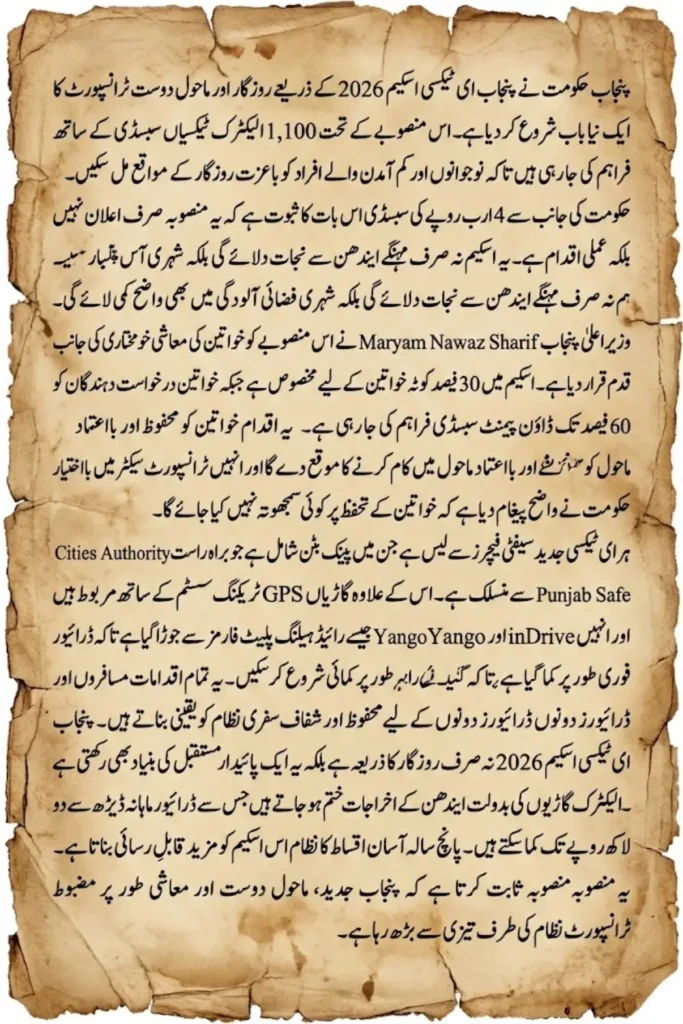 پنجاب حکومت نے پنجاب ای ٹیکسی اسکیم 2026 کے ذریعے روزگار اور ماحول دوست ٹرانسپورٹ کا
ایک نیا باب شروع کر دیا ہے۔ اس منصوبے کے تحت 1,100 الیکٹرک ٹیکسیاں سبسڈی کے ساتھ
فراہم کی جا رہی ہیں تاکہ نوجوانوں اور کم آمدن والے افراد کو باعزت روزگار کے مواقع مل سکیں۔
حکومت کی جانب سے 4 ارب روپے کی سبسڈی اس بات کا ثبوت ہے کہ یہ منصوبہ صرف اعلان نہیں
بلکہ عملی اقدام ہے۔ یہ اسکیم نہ صرف مہنگے ایندھن سے نجات دلائے گی بلکہ شہری آس
ہم نہ صرف مہنگے ایندھن سے نجات دلائے گی بلکہ شہری فضائی آلودگی میں بھی واضح کمی لائے گی۔
وزیراعلیٰ پنجاب Maryam Nawaz Sharif نے اس منصوبے کو خواتین کی معاشی خومختاری کی جانب
قدم قرار دیا ہے۔ اسکیم میں 30 فیصد کوٹہ خواتین کے لیے مخصوص ہے جبکہ خواتین درخواست دہندگان کو
60 فیصد تک ڈاؤن پیمنٹ سبسڈی فراہم کی جا رہی ہے۔ یہ اقدام خواتین کو محفوظ اور بااعتماد
ماحول کو اور بااعتماد ماحول میں کام کرنے کا موقع دے گا اور انہیں ٹرانسپورٹ سیکٹر میں بااختیار
حکومت نے واضح پیغام دیا ہے کہ خواتین کے تحفظ پر کوئی سمجھوتہ نہیں کیا جائے گا۔
ہر ای ٹیکسی جدید سیفٹی فیچرز سے لیس ہے جن میں پینک بٹن شامل ہے جو براہ راست Cities Authority
Punjab Safe سے منسلک ہے۔ اس کے علاوہ گاڑیاں GPS ٹریکنگ سسٹم کے ساتھ مربوط ہیں
اور انہیں inDrive اور YangoYango جیسے رائیڈ ہیلنگ پلیٹ فارمز سے جوڑا گیا ہے تاکہ ڈرائیور
فوری طور پر کما گیا ہے تاکہ طور پر کمائی شروع کر سکیں۔ یہ تمام اقدامات مسافروں اور
ڈرائیورز دونوں ڈرائیورز دونوں کے لیے محفوظ اور شفاف سفری نظام کو یقینی بناتے ہیں۔ پنجاب
ای ٹیکسی اسکیم 2026 نہ صرف روزگار کا ذریعہ ہے بلکہ یہ ایک پائیدار مستقبل کی بنیاد بھی رکھتی ہے
۔الیکٹرک گاڑیوں کی بدولت ایندھن کے اخراجات ختم ہو جاتے ہیں جس سے ڈرائیور ماہانہ ڈیڑھ سے دو
لاکھ روپے تک کما سکتے ہیں۔ پانچ سالہ آسان اقساط کا نظام اس اسکیم کو مزید قابلِ رسائی بناتا ہے۔
یہ منصوبہ منصوبہ ثابت کرتا ہے کہ پنجاب جدید، ماحول دوست اور معاشی طور پر مضبوط
ٹرانسپورٹ نظام کی طرف تیزی سے بڑھ رہا ہے۔